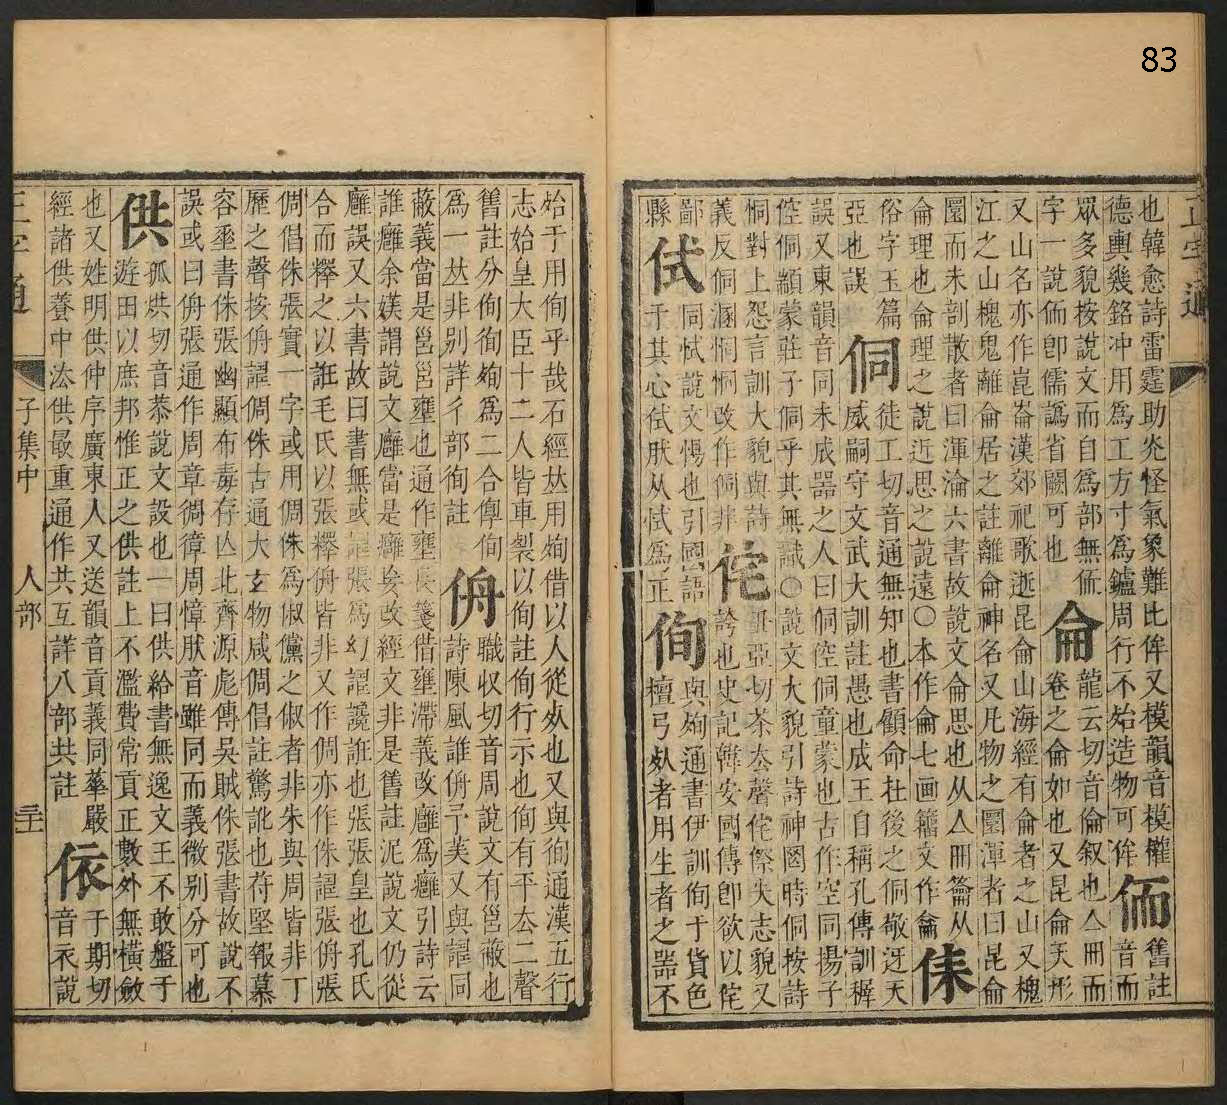 83
正字通
也韓愈詩雷霆助炎怪氣象難比侔又模韻音模權
德輿幾銘冲用爲工方寸爲鑪周行不始造物可侔 侕 舊註音而
眾多貌按說文而自爲部無侕
字一說侕卽儒譌省闕可也 侖 龍云切音倫叙也亼冊而卷之侖如也又昆侖天形
又山名亦作崑崙漢郊祀歌逝昆侖山海經有侖者之山又槐
江之山槐鬼離侖居之註離侖神名又凡物之圜渾者曰昆侖
圜而未剖散者曰渾淪六書故說文侖思也从亼冊籥从
侖理也侖理之說近思之說遠○本作侖七画籒文作龠 侏
俗字玉篇 侗 徒工切音通無知也書顧命杜後之侗敬迓天
亞也誤 威嗣守文武大訓註愚也成王自稱孔傳訓穉
誤又東韻音同未成器之人曰侗倥侗童蒙也古作空同揚子
倥侗顓蒙莊子侗乎其無識○說文大貌引詩神罔時侗按詩
恫對上怨言訓大貌與詩 侘 丑亞切茶去聲侘傺失志貌又
義反侗溷恫恫改作侗非 誇也史記韓安國傳卽欲以侘
鄙 侙 同恜說文惕也引國語 侚 與殉通書伊訓侚于貨色
縣 于其心侙肰从恜爲正 檀弓死者用生者之器不
始于用侚乎哉石經夶用殉借以人從死也又與徇通漢五行
志始皇大臣十二人皆車裂以侚註侚行示也侚有平去二聲
舊註分侚徇殉爲二合傳侚 侜 職収切音周說文有邕蔽也
爲一夶非別詳彳部徇註 詩陳風誰侜予美又與譸同
蔽義當是邕邕壅也通作壅 箋借壅滯義改廱爲癰引詩云
誰廱余媄謂說文廱當是癰矣改經文非是舊註泥說文仍從
廱誤又六書故曰書無或譸張爲幻譸讒誑也張張皇也孔氏
合而釋之以誑毛氏以張釋侜皆非又作倜亦作侏譸張侜張
倜倡侏張實一字或用倜侏爲俶儻之俶者非朱與周皆非丁
歷之聲按侜譸倜侏古通大玄物咸倜倡註驚訛也苻堅報慕
容垂書侏張幽顯布毒存亾北齊源彪傳吳賊侏張書故說不
誤或曰侜張通作周章徟徫周慞肰音雖同而義微別分可也
供 孤烘切音恭說文設也一曰供給書無逸文王不敢盤于
游田以庶邦惟正之供註上不濫費常貢正數外無橫斂
也又姓明供仲序廣東人又送韻音貢義同華嚴 依 于期切
經諸供養中法供最重通作共互詳八部共註 音衣說
正字通
子集中
人部
三十